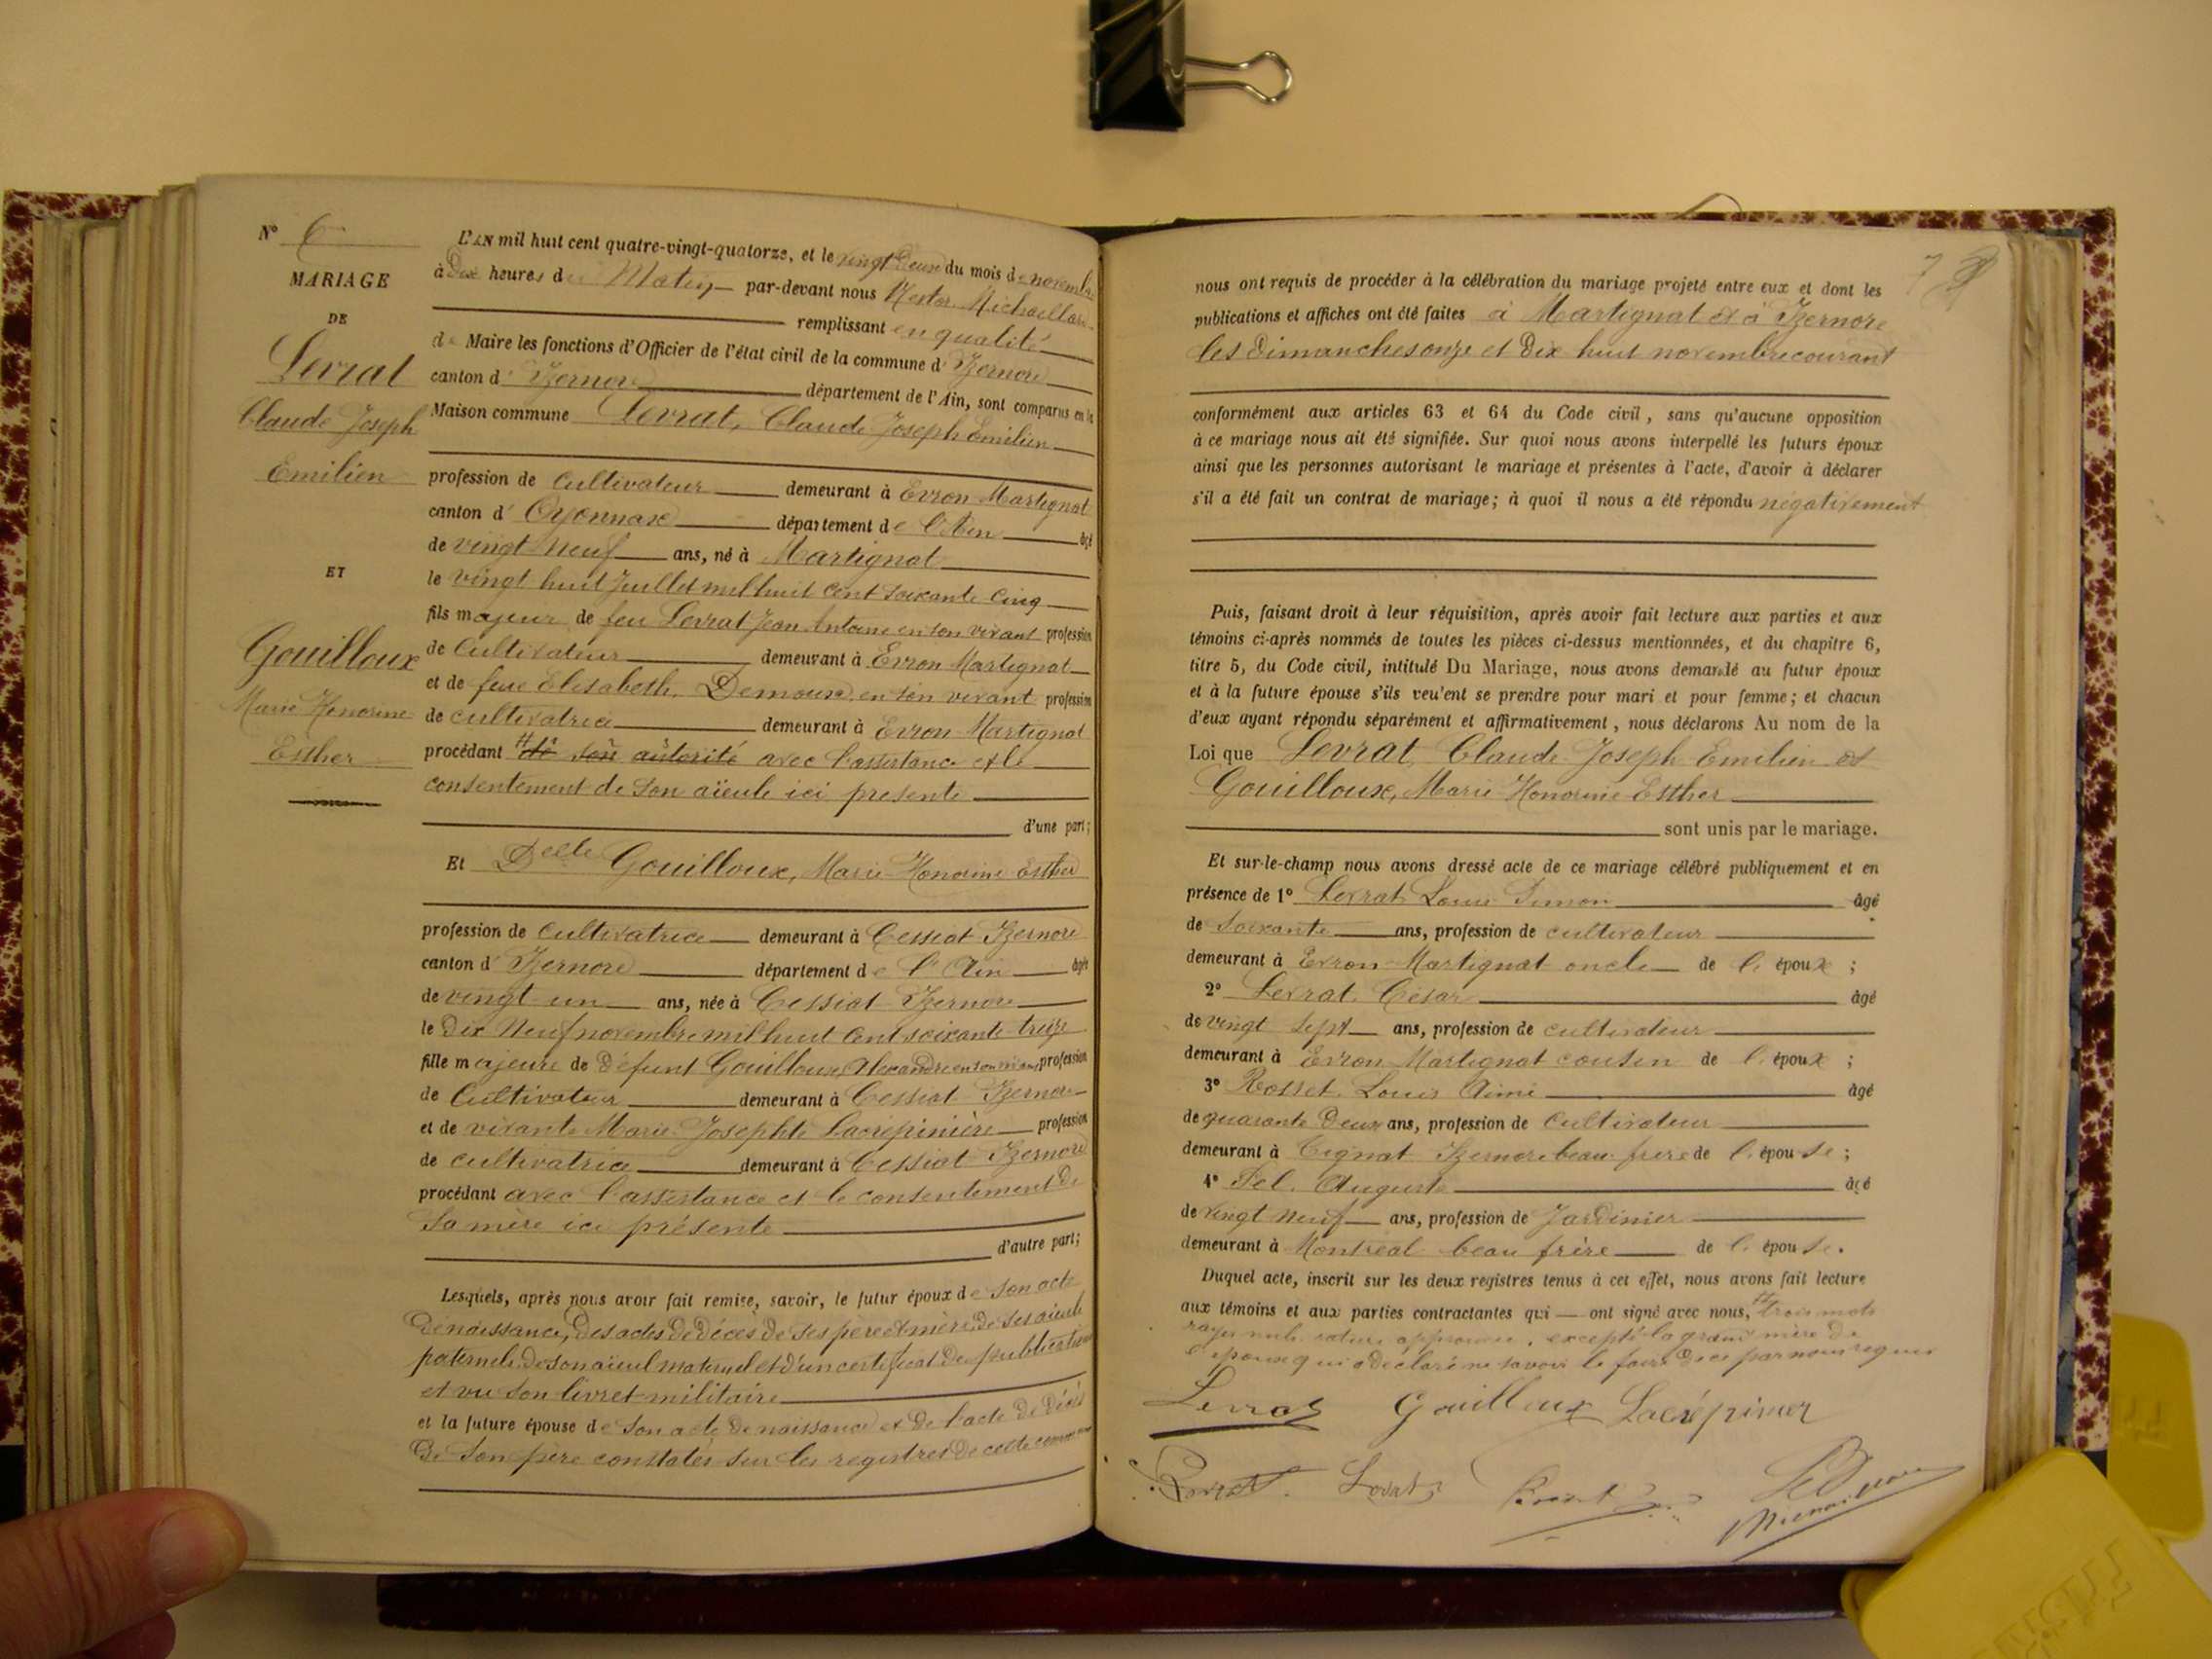 N° 6
MARIAGE
DE
Levrat
Claude Joseph
Emilien
ET
Gouilloux
Marie Honorine
Esther
L'AN mil huit cent quatre-vingt-quatorze, et le vingt deux du mois de novembre
à dix heures du Matin par-devant nous Nestor
remplissant en qualité
de Maire les fonctions d'Officier de l'état civil de la commune d'Izernore
canton d'Izernore département de l'Ain, sont comparus en la
Maison commune Levrat, Claude Joseph Emilien
profession de cultivateur demeurant à Evron Martignat
canton d'Oyonnax département de l'Ain âgé
de vingt neuf ans, né à Martignat
le vingt huit Juillet mil huit cent soixante cinq
fils majeur de feu Levrat Jean Antoine en son vivant profession
de Cultivateur demeurant à Evron Martignat
et de feue Elisabeth Demoux en son vivant profession
de cultivatrice demeurant à Evron Martignat
procédant # de son autorité avec l'assistance et le
consentement de son aïeule ici presente
d'une part;
Et Delle Gouilloux, Marie Honorine Esther
profession de cultivatrice demeurant à Cessiat Izernore
canton d'Izernore département de l'Ain âgée
de vingt un ans, née à Cessiat Izernore
le dix Neuf novembre mil huit cent soixante treize
fille majeure de défunt Gouilloux Alexandre en son vivant profession
de Cultivateur demeurant à Cessiat Izernore
et de vivante Marie Josephte Lacrépinière profession
de cultivatrice demeurant à Cessiat Izernore
procédant avec l'assistance et le consentement de
sa mère ici présente
d'autre part;
Lesquels, après nous avoir fait remise, savoir, le futur époux de son acte
de naissance, des actes de décès de ses père et mère, de ses aïeuls
paternels, de son aïeul maternel et d'un certificat de publication
et vu son livret militaire
et la future épouse de son acte de naissance et de l'acte de décès
de son père constatés sur les registres de cette commune
7
nous ont requis de procéder à la célébration du mariage projeté entre eux et dont les
publications et affiches ont été faites à Martignat et à Izernore
les dimanches onze et dix huit novembre courant
conformément aux articles 63 et 64 du Code civil, sans qu'aucune opposition
à ce mariage nous ait été signifiée. Sur quoi nous avons interpellé les futurs époux
ainsi que les personnes autorisant le mariage et présentes à l'acte, d'avoir à déclarer
s'il a été fait un contrat de mariage; à quoi il nous a été répondu négativement
Puis, faisant droit à leur réquisition, après avoir fait lecture aux parties et aux
témoins ci-après nommés de toutes les pièces ci-dessus mentionnées, et du chapitre 6,
titre 5, du Code civil, intitulé Du Mariage, nous avons demandé au futur époux
et à la future épouse s'ils veu'ent se prendre pour mari et pour femme; et chacun
d'eux ayant répondu séparément et affirmativement, nous déclarons Au nom de la
Loi que Levrat Claude Joseph Emilien et
Gouilloux, Marie Honorine Esther
sont unis par le mariage.
Et sur-le-champ nous avons dressé acte de ce mariage célébré publiquement et en
présence de 1° Levrat Louis Simon âgé
de soixante ans, profession de cultivateur
demeurant à Evron Martignat oncle de l'époux;
2° Levrat César âgé
de vingt sept ans, profession de cultivateur
demeurant à Evron Martignat cousin de l'époux;
3° Rosset Louis Aimé âgé
de quarante deux ans, profession de Cultivateur
demeurant à Tignat Izernore beau frère de l'épouse;
4° Fel. Auguste âgé
de vingt neuf ans, profession de Jardinier
demeurant à Montréal beau frère de l'épouse.
Duquel acte, inscrit sur les deux registres tenus à cet effet, nous avons fait lecture
aux témoins et aux parties contractantes qui ont signé avec nous, # trois mots
rayés nuls approuvé, excepté la grand mère de
l'époux qui a déclaré ne savoir le faire de ce par nous requis
Levrat Gouilloux Lacrépinier
Levrat